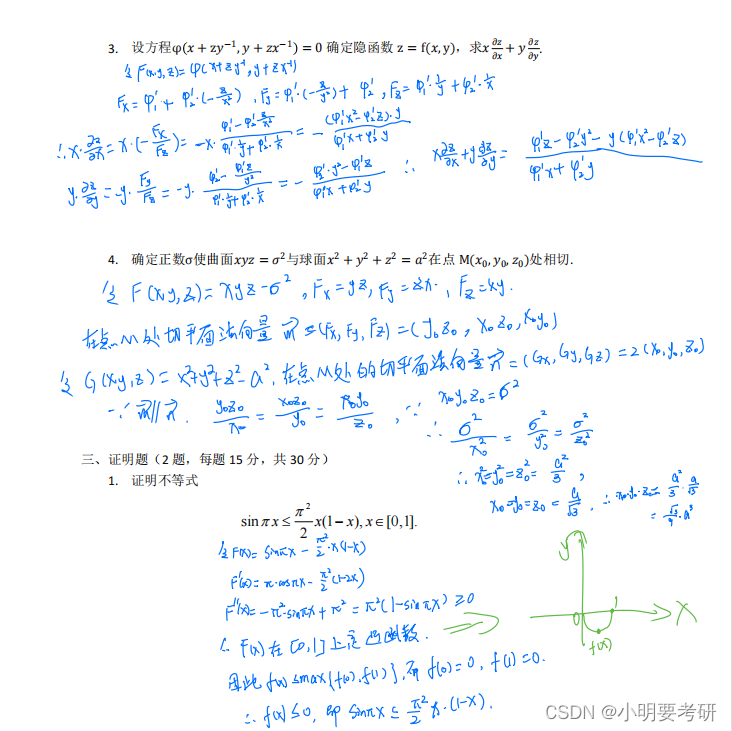 3. 设方程φ(x + zy⁻¹, y + zx⁻¹) = 0 确定隐函数 z = f(x, y)，求x ∂z/∂x + y ∂z/∂y.
令F(x,y,z)=φ(x+zy⁻¹, y+zx⁻¹)
Fx = φ₁' + φ₂'·(-z/x²), Fy = φ₁'·(-z/y²) + φ₂', Fz = φ₁'·1/y + φ₂'·1/x
∴ x·∂z/∂x = x·(-Fx/Fz) = -x·(φ₁'-φ₂'z/x²)/(φ₁'·1/y+φ₂'·1/x) = -(φ₁'x²-φ₂'z)·y/(φ₁'x+φ₂'y)
y·∂z/∂y = -y·Fy/Fz = -y·(φ₂'-φ₁'z/y²)/(φ₁'·1/y+φ₂'·1/x) = -(φ₂'·y²-φ₁'z)/(φ₁'x+φ₂'y) ∴ x∂z/∂x+y∂z/∂y = (φ₁'z-φ₂'y²-y(φ₁'x²-φ₂'z))/(φ₁'x+φ₂'y)
4. 确定正数σ使曲面xyz = σ²与球面x² + y² + z² = a²在点 M(x₀, y₀, z₀)处相切.
令 F(x,y,z)=xyz-σ², Fx=yz, Fy=zx, Fz=xy.
在点M处切平面法向量 m=(Fx, Fy, Fz)=(y₀z₀, x₀z₀, x₀y₀)
令 G(x,y,z)=x²+y²+z²-a², 在点M处的切平面法向量n=(Gx,Gy,Gz)=2(x₀,y₀,z₀)
∵ m∥n. y₀z₀/x₀ = x₀z₀/y₀ = x₀y₀/z₀, ∵ x₀y₀z₀=σ²
∴ σ²/x₀² = σ²/y₀² = σ²/z₀²
∴ x₀²=y₀²=z₀²=a²/3,
x₀=y₀=z₀=a/√3, ∴ x₀·y₀·z₀=a²/3·a/√3
=√3/9·a³
三、证明题（2 题，每题 15 分，共 30 分）
1. 证明不等式
sin πx ≤ π²/2 x(1−x), x∈[0,1].
令F(x)=sinπx-π²/2·x(1-x)
F'(x)=π·cosπx-π²/2(1-2x)
F''(x)=-π²·sinπx+π²=π²(1-sinπx)≥0
∴ F(x)在[0,1]上是凹函数.
因此f(x)≤max{f(0),f(1)}, 而f(0)=0, f(1)=0.
∴ f(x)≤0, 即 sinπx≤π²/2 x·(1-x).
y
0 1 X
f(x)
CSDN @小明要考研